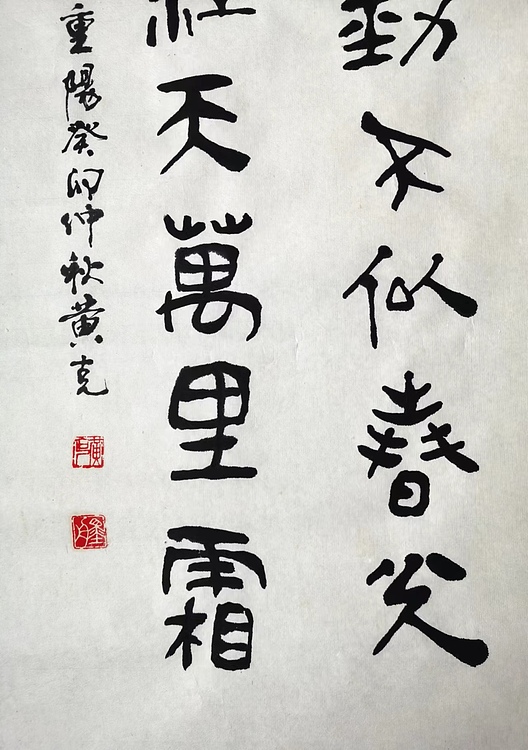 勁不似春光
江天萬里霜
重陽癸卯仲秋黃克